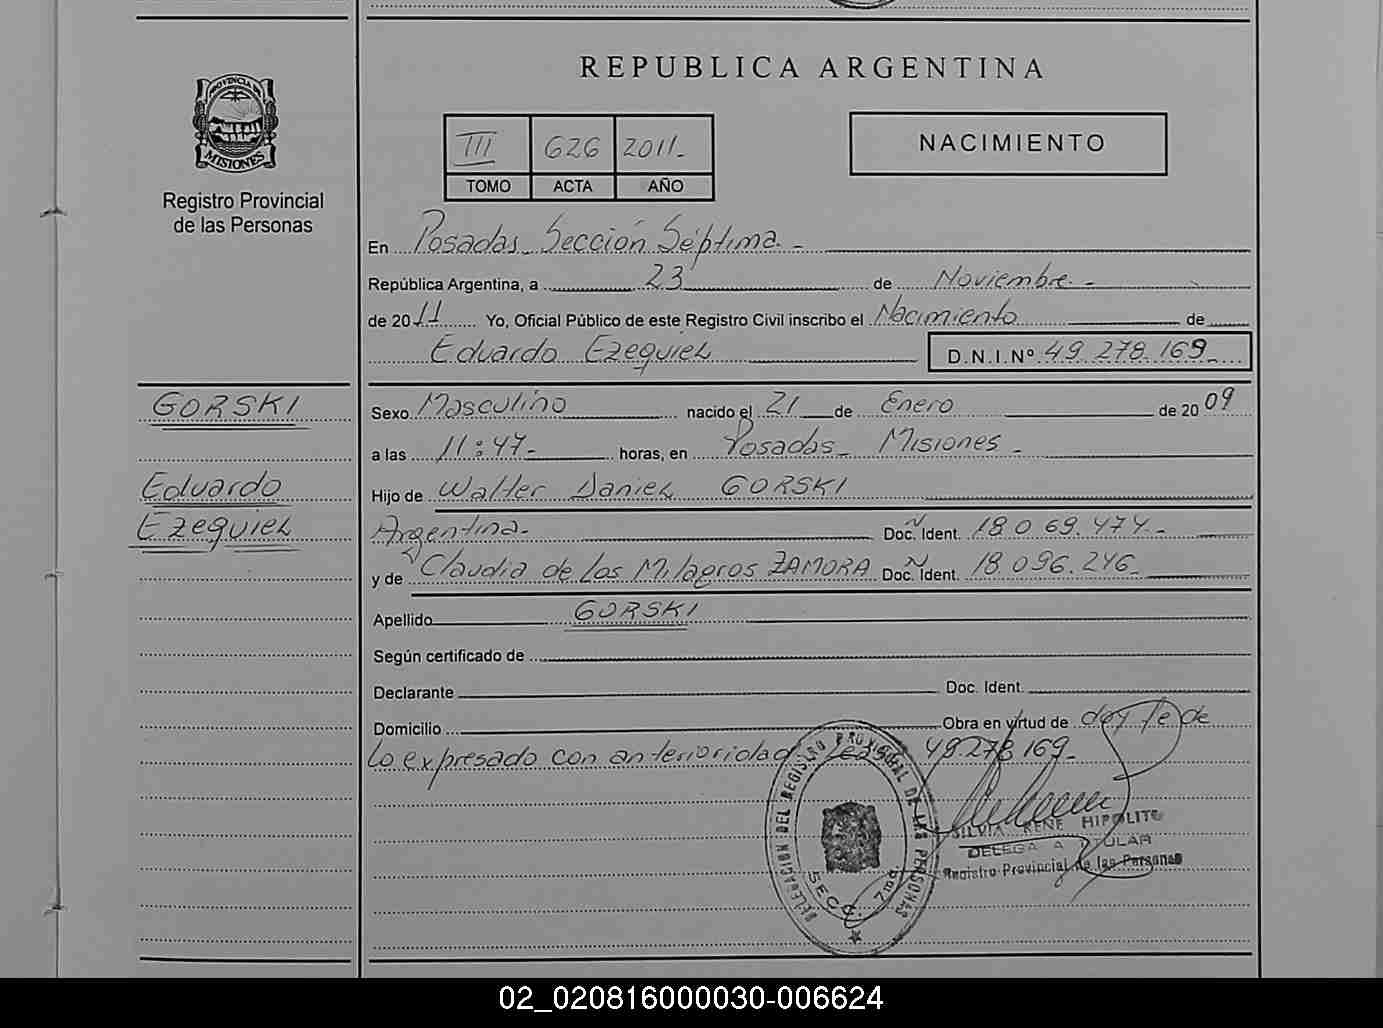 REPUBLICA ARGENTINA
PROVINCIA DE
MISIONES
Registro Provincial
de las Personas
III 626 2011-
TOMO ACTA AÑO
NACIMIENTO
En Posadas - Sección Séptima. -
República Argentina, a 23 de Noviembre. -
de 2011 Yo, Oficial Público de este Registro Civil inscribo el Nacimiento de
Eduardo Ezequiel D.N.I.Nº 49.278.169-
GORSKI
Eduardo
Ezequiel
Sexo Masculino nacido el 21 de Enero de 2009
a las 11:47- horas, en Posadas - Misiones -
Hijo de Walter Daniel GORSKI
Argentina.- Doc. Ident. 18.069.474-
y de Claudia de Los Milagros ZAMORA Doc. Ident. 18.096.246-
Apellido GORSKI
Según certificado de
Declarante Doc. Ident.
Domicilio Obra en virtud de doy fe de
Lo expresado con anterioridad 49.278.169-
DELEGACION DEL REGISTRO PROVINCIAL DE LAS PERSONAS
SECC. 7ma
SILVIA RENE HIPOLITO
DELEGADA TITULAR
Registro Provincial de las Personas
02_020816000030-006624